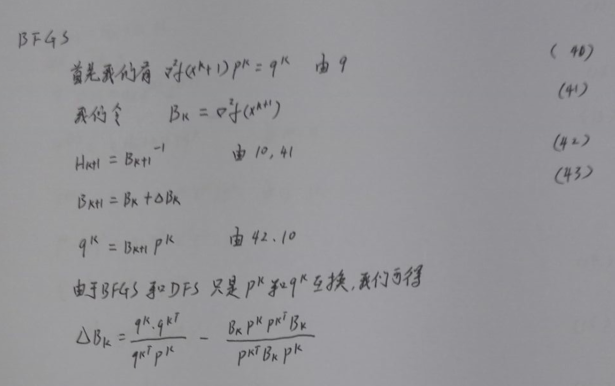 BFGS
首先我们有 ∇²f(x^{k+1}) p^k = q^k 由 9 (40)
我们令 B_k = ∇²f(x^{k+1}) (41)
H_{k+1} = B_{k+1}^{-1} 由 10, 41 (42)
B_{k+1} = B_k + ΔB_k (43)
q^k = B_{k+1} p^k 由 42. 10
由于BFGS 和 DFS 只是 p^k 和 q^k 互换, 我们可得
ΔB_k = \frac{q^k \cdot q^{kT}}{q^{kT} p^k} - \frac{B_k p^k p^{kT} B_k}{p^{kT} B_k p^k}